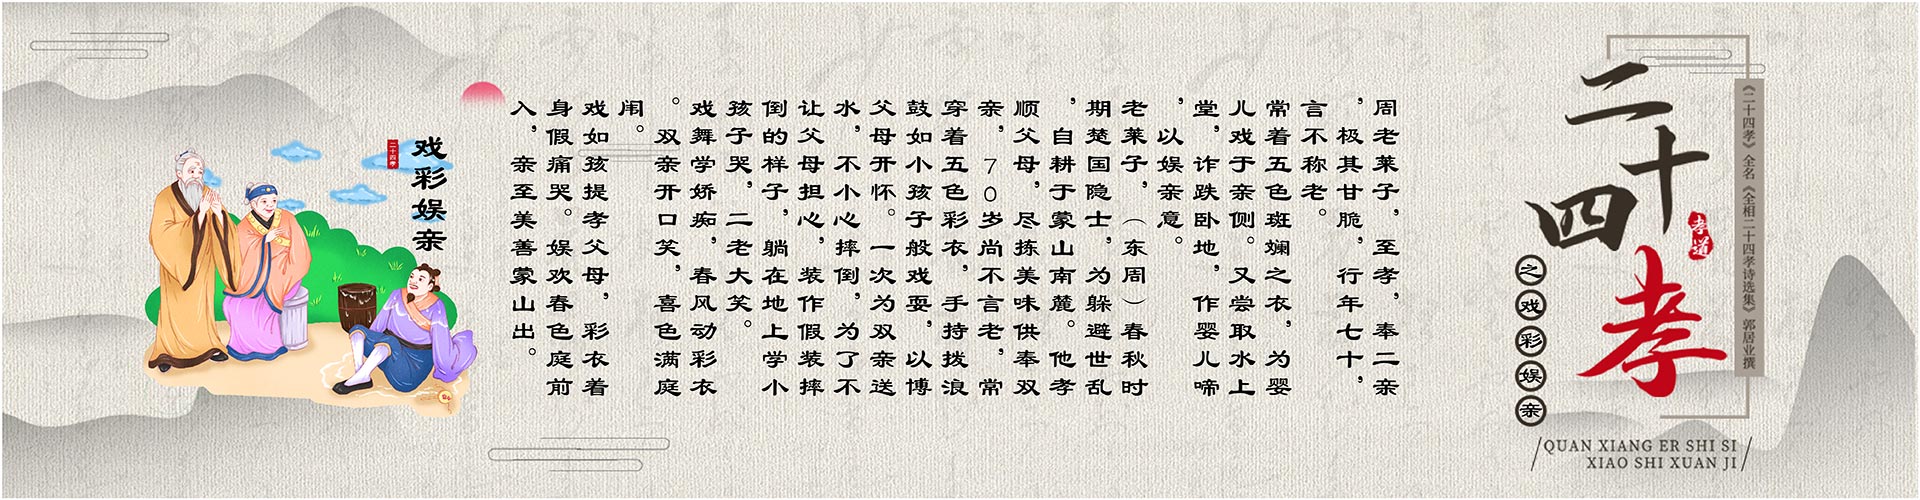 二十四孝
孝道
《二十四孝》全名《全相二十四孝诗选集》郭居业撰
之戏彩娱亲
QUAN XIANG ER SHI SI
XIAO SHI XUAN JI
周老莱子，至孝，奉二亲
，极其甘脆，行年七十，
言不称老。
常着五色斑斓之衣，为婴
儿戏于亲侧。又尝取水上
堂，诈跌卧地，作婴儿啼
，以娱亲意。
老莱子，（东周）春秋时
期楚国隐士，为躲避世乱
，自耕于蒙山南麓。他孝
顺父母，尽拣美味供奉双
亲，70岁尚不言老，常
穿着五色彩衣，手持拨浪
鼓如小孩子般戏耍，以博
父母开怀。一次为双亲送
水，不小心摔倒，为了不
让父母担心，装作假装摔
倒的样子，躺在地上学小
孩子哭，二老大笑。
戏舞学娇痴，春风动彩衣
。双亲开口笑，喜色满庭
闹。
戏如孩提孝父母，彩衣着
身假痛哭。娱欢春色庭前
入，亲至美善蒙山出。
戏彩娱亲
二十四孝